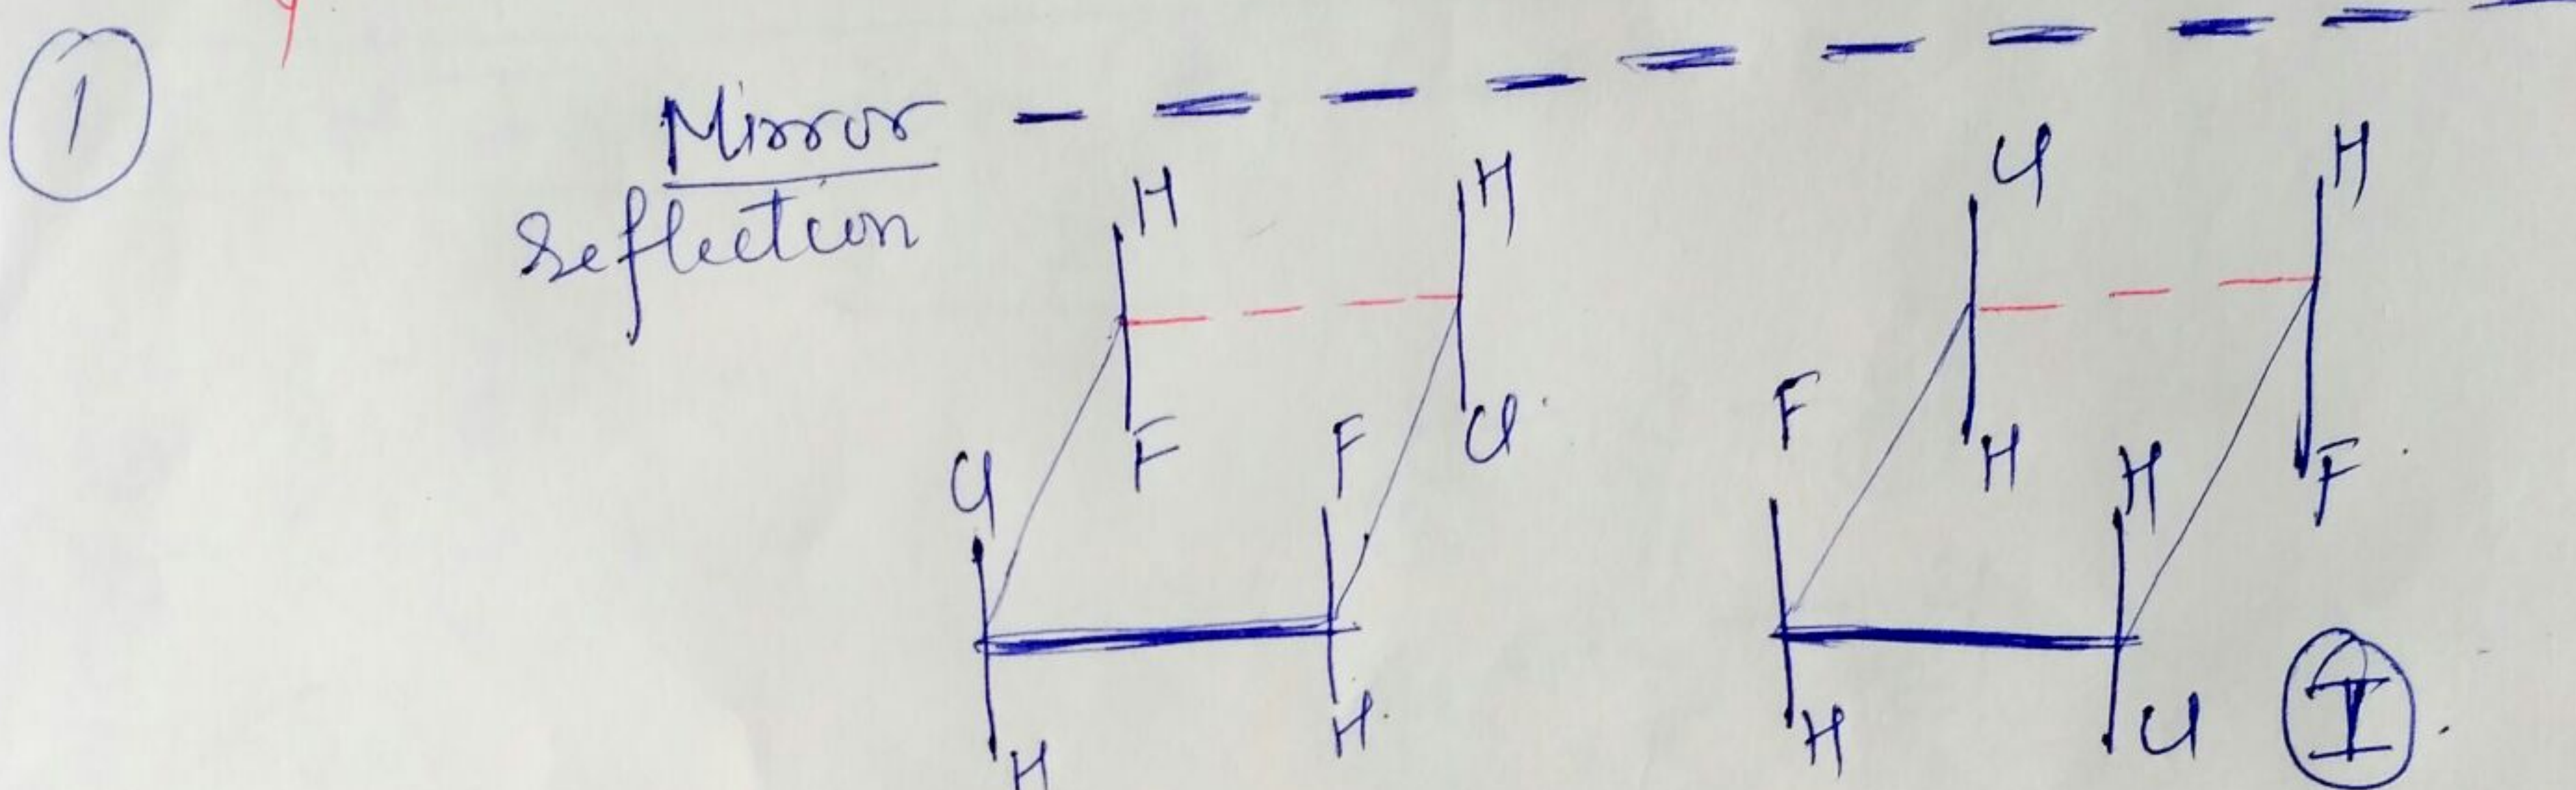 1
Mirror
reflection
H
H
Cl
H
F
Cl
F
Cl
F
H
H
F
H
H
H
Cl
I